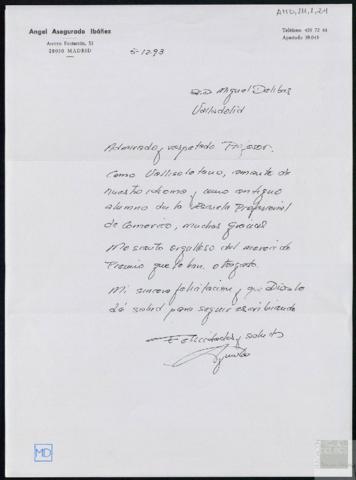 AMD,111,1,24
Angel Asegurado Ibáñez
28030 MADRID
5-12-93
Sr. D. Miguel Delibes
Valladolid
Admirado y respetado Profesor.
Como Vallisoletano, amante de
nuestro idioma, y como antiguo
alumno de la Escuela Profesional
de Comercio, muchas gracias
Me siento orgulloso del merecido
Premio que le han otorgado.
Mi sincera felicitacion, y que Dios le
dé salud para seguir escribiendo
Felicidades y saludos
MD